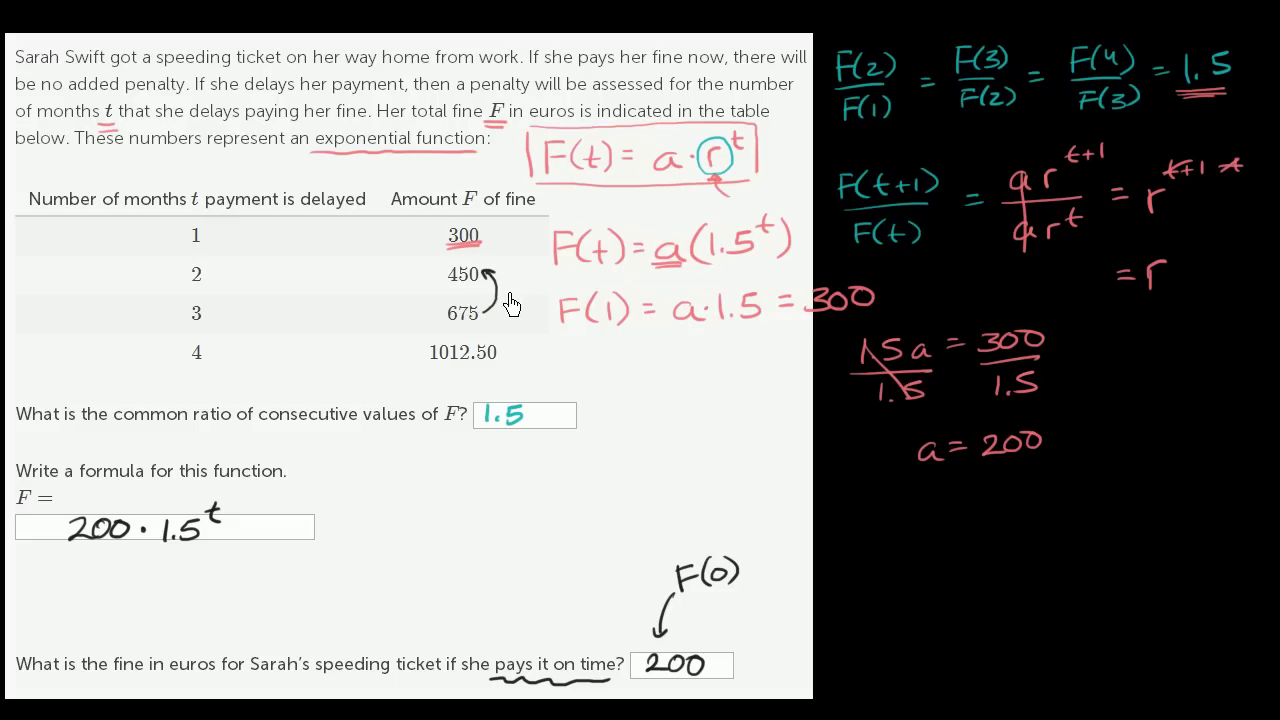 Sarah Swift got a speeding ticket on her way home from work. If she pays her fine now, there will
be no added penalty. If she delays her payment, then a penalty will be assessed for the number
of months t that she delays paying her fine. Her total fine F in euros is indicated in the table
below. These numbers represent an exponential function:
F(t) = a · r^t
Number of months t payment is delayed Amount F of fine
1 300
2 450
3 675
4 1012.50
F(t) = a(1.5^t)
F(1) = a · 1.5 = 300
What is the common ratio of consecutive values of F? 1.5
Write a formula for this function.
F =
200 · 1.5^t
F(0)
What is the fine in euros for Sarah's speeding ticket if she pays it on time? 200
F(2)/F(1) = F(3)/F(2) = F(4)/F(3) = 1.5
F(t+1)/F(t) = ar^t+1/ar^t = r^t+1-t
= r
1.5a/1.5 = 300/1.5
a = 200